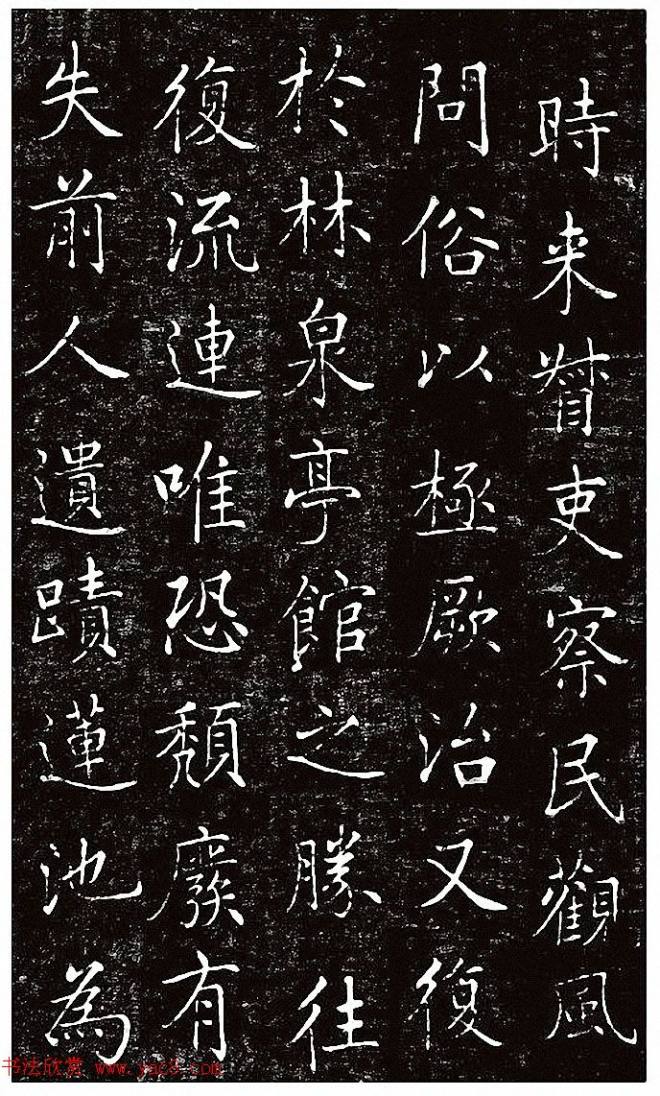 時来督吏察民觀風
問俗以極厥治又復
於林泉亭館之勝往
復流連唯恐頹廢有
失前人遺蹟蓮池為
书法欣赏 www.yac8.com